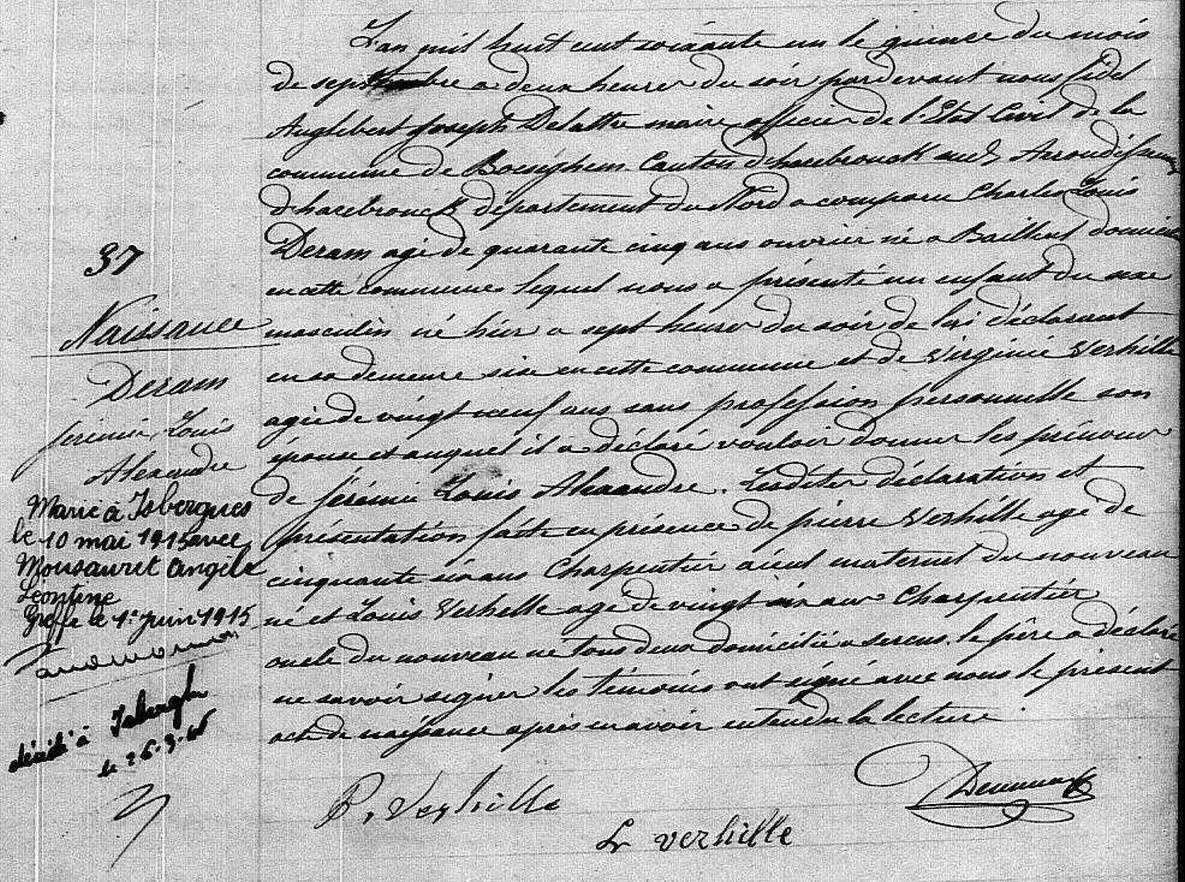 L'an mil huit cent soixante un le quinze du mois
de septembre a deux heures du soir pardevant nous fidel
Anglebert Joseph Delattre maire officier de l'Etat Civil de la
commune de Boeseghem Canton d'hazebrouck Arrondissem
d'hazebrouck département du Nord a comparu Charles Louis
Deram agé de quarante cinq ans ouvrier né a Bailleul domicil
en cette commune lequel nous a présenté un enfant du sexe
masculin né hier a sept heures du soir de lui déclarant
en sa demeure sise en cette commune et de Virginie Verhille
agée de vingt neuf ans sans profession personnelle son
épouse et auquel il a déclaré vouloir donner les prénoms
de Jérémie Louis Alexandre. Lesdites déclaration et
présentation faite en présence de pierre Verhille agé de
cinquante six ans Charpentier aieul maternel du nouveau
né et Louis Verhille agé de vingt six ans Charpentier
oncle du nouveau né tous deux domicilié a sercus. le père a déclaré
ne savoir signer les témoins ont signé avec nous le présent
acte de naissance après en avoir entendu la lecture.
37
Naissance
Deram
Jérémie, Louis
Alexandre
Marié à Isbergues
le 10 mai 1915 avec
Monsauret Angèle
Léontine
Greffe le 1er juin 1915
décédé à Isbergues
P. Verhille
L Verhille